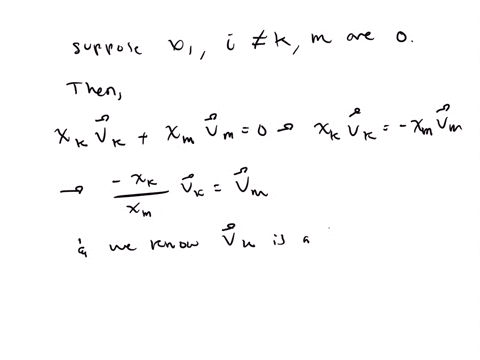 suppose x_i, i ≠ k, m are 0.
Then,
x_k v⃗_k + x_m v⃗_m = 0 → x_k v⃗_k = -x_m v⃗_m
→ -x_k / x_m v⃗_k = v⃗_m
& we know v⃗_k is a